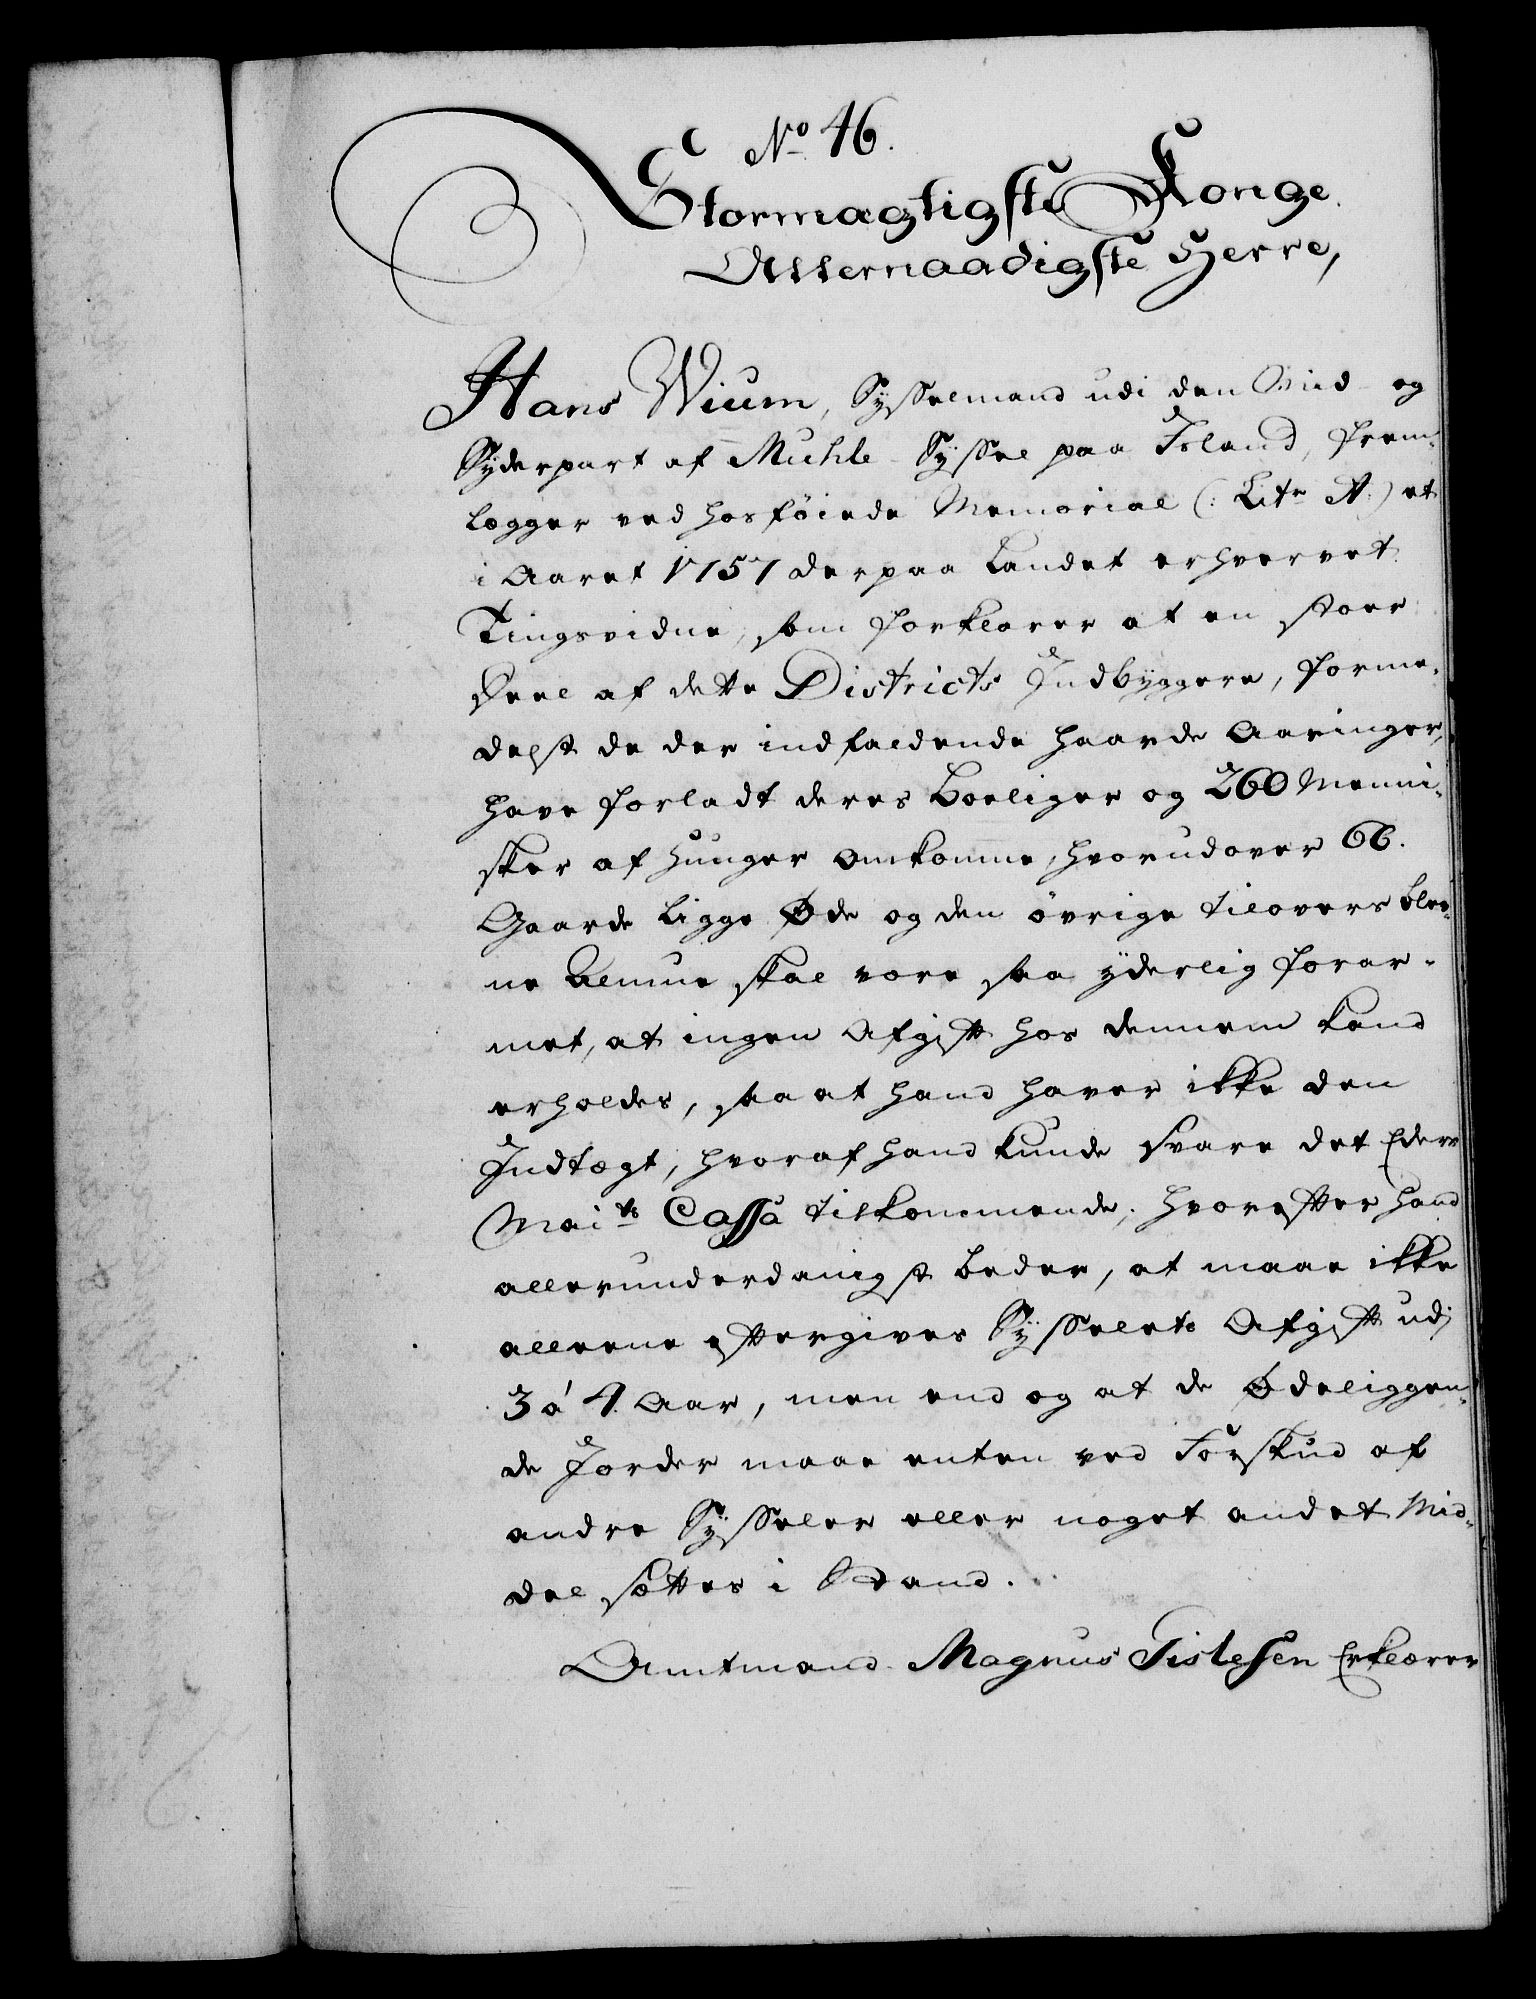 No 46.
Stormægtigste Konge
Allernaadigste Herre,
Hans Wium, Sysselmand udi den Mid- og
Syderpart af Muhle-Syssel paa Island, frem-
legger ved hosføiede Memorial (: Litr A:) et
i Aaret 1757 der paa Landet erhvervet
Tingsvidne, som forklarer at en stoer
Deel af dette Districts Indbyggere, forme-
delst de der indfaldende haarde Aaringer,
have forladt deres Boeliger og 260 Menni-
sker af Hunger omkomne, hvorudover 66.
Gaarde ligge Øde og den øvrige tilovers blev-
ne Almue skal være saa yderlig forar-
met, at ingen Afgift hos dennem kand
erholdes, saa at hand haver ikke den
Indtægt, hvoraf hand kunde svare det Eders
Maits Cassa tilkommende, hvorefter hand
allerunderdanigst beder, at maae ikke
alleene eftergives Sysselets Afgift udi
3 á 4 Aar, men end og at de Ødeliggen-
de Jorder maae enten ved Forskud af
andre Sysseler eller noget andet Mid-
del sættes i Stand.
Amtmand Magnus Gislesen Erklærer